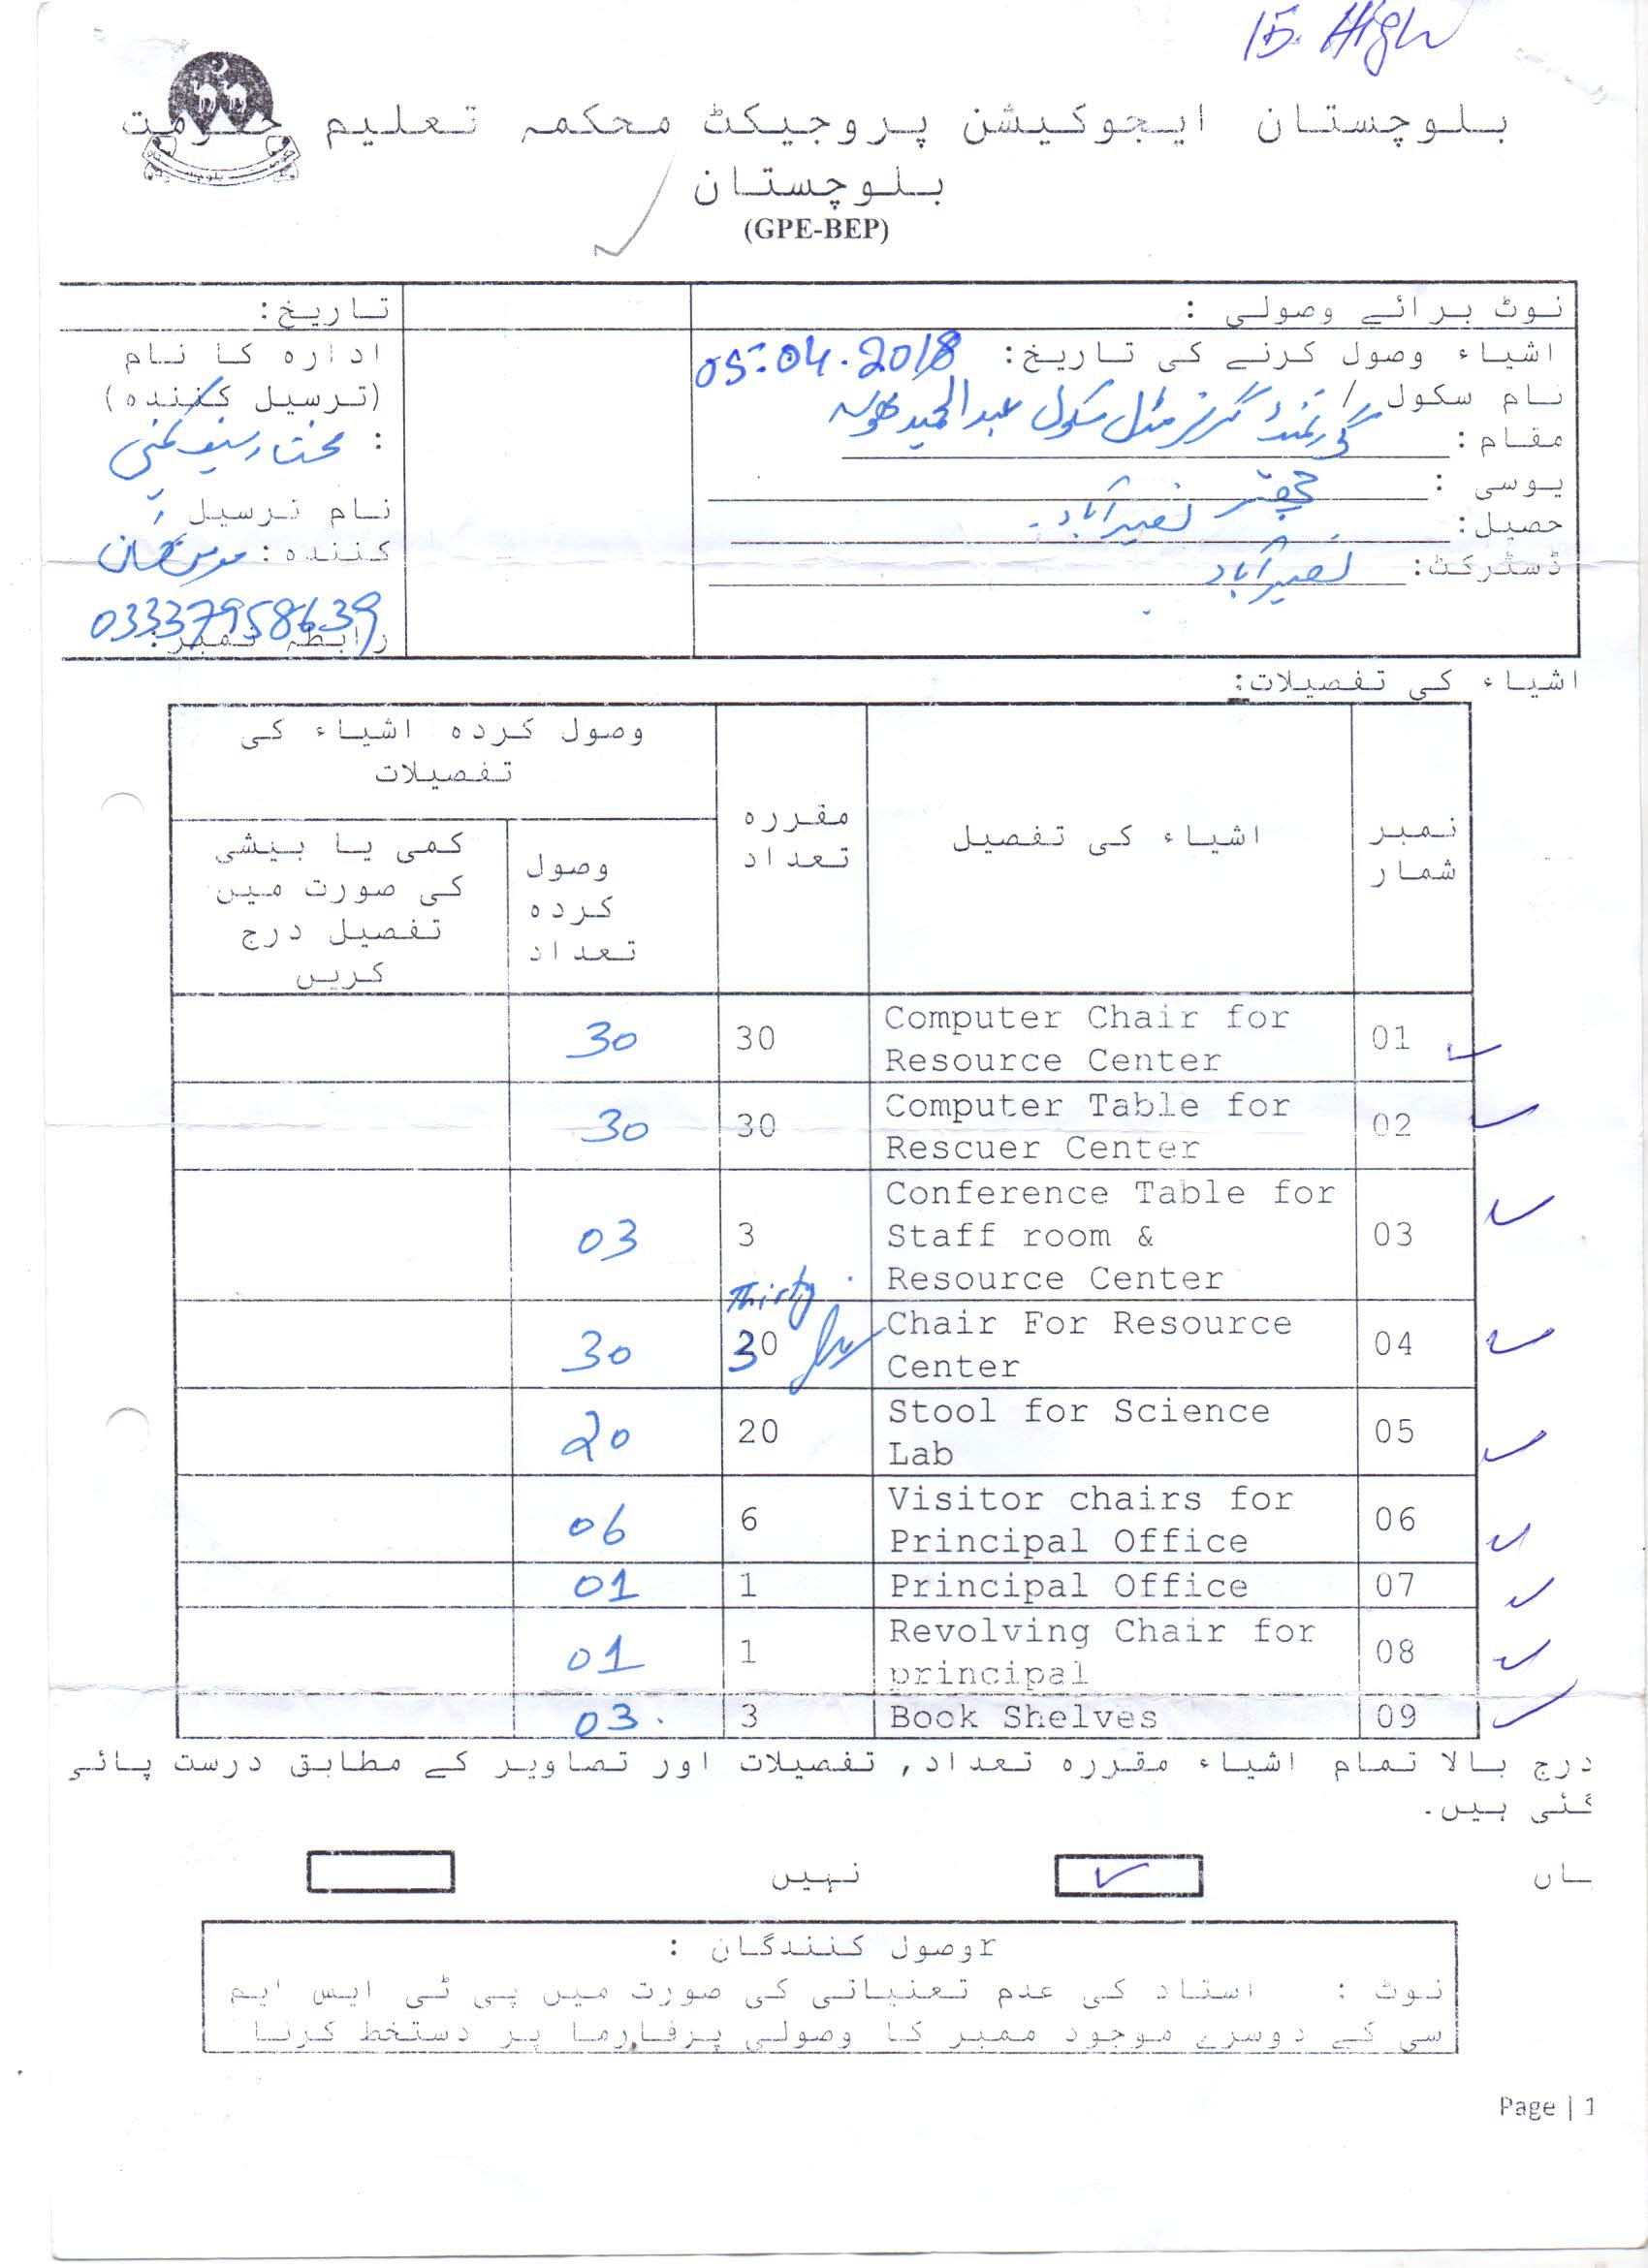 15. High
بلوچستان ایجوکیشن پروجیکٹ محکمہ تعلیم حکومت
بلوچستان
(GPE-BEP)
نوٹ برائے وصولی :
اشیاء وصول کرنے کی تاریخ: 05.04.2018
نام سکول / گورنمنٹ گرلز مڈل سکول عبدالحمید کھوسہ
مقام:
یوسی : چھتر
حصیل: نصیرآباد
ڈسٹرکٹ: نصیرآباد
تاریخ:
ادارہ کا نام
(ترسیل کنندہ)
:
نام ترسیل
کنندہ:
03337958639
رابطہ نمبر:
اشیاء کی تفصیلات:
نمبر شمار اشیاء کی تفصیل مقررہ تعداد وصول کردہ اشیاء کی تفصیلات
وصول کردہ تعداد کمی یا بیشی کی صورت میں تفصیل درج کریں
01 Computer Chair for Resource Center 30 30
02 Computer Table for Rescuer Center 30 30
03 Conference Table for Staff room & Resource Center 3 03
Thirty
04 Chair For Resource Center 30 30
05 Stool for Science Lab 20 20
06 Visitor chairs for Principal Office 6 06
07 Principal Office 1 01
08 Revolving Chair for principal 1 01
09 Book Shelves 3 03.
درج بالا تمام اشیاء مقررہ تعداد, تفصیلات اور تصاویر کے مطابق درست پائی
گئی ہیں.
ہاں نہیں
rوصول کنندگان :
نوٹ : استاد کی عدم تعنیاتی کی صورت میں پی ٹی ایس ایم
سی کے دوسرے موجود ممبر کا وصولی پرفارما پر دستخط کرنا
Page | 1